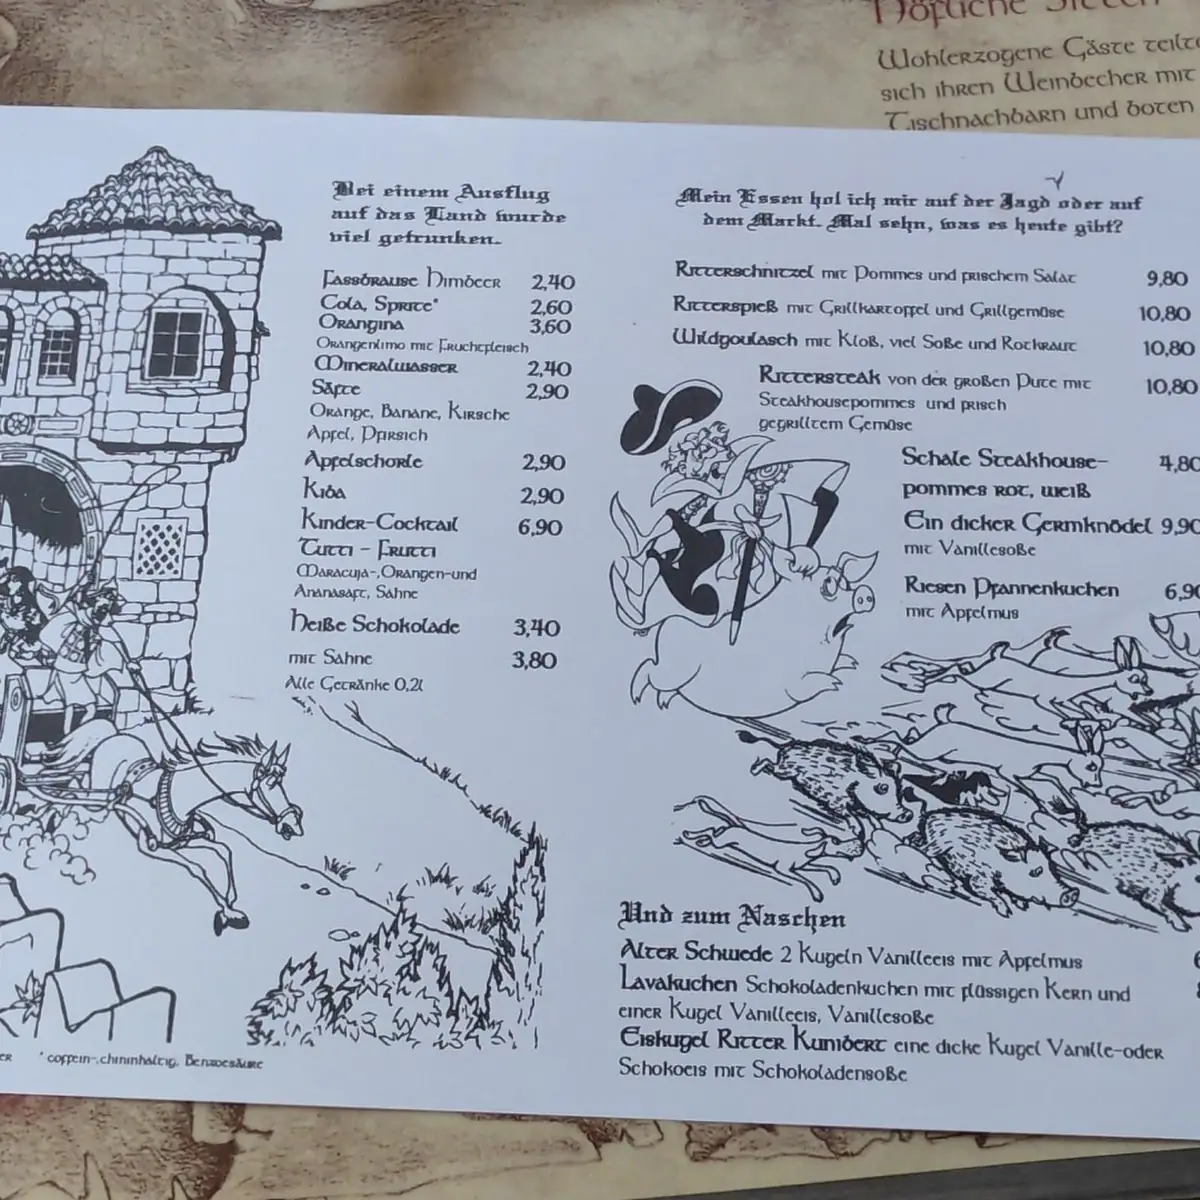 Höfliche Sitten
Wohlerzogene Gäste teilte
sich ihren Weinbecher mit
Tischnachbarn und boten
Bei einem Ausflug
auf das Land wurde
viel getrunken.
Fassbrause Himbeer 2,40
Cola, Sprite* 2,60
Orangina 3,60
Orangenlimo mit Fruchtfleisch
Mineralwasser 2,40
Säfte 2,90
Orange, Banane, Kirsche
Apfel, Pfirsich
Apfelschorle 2,90
Kiba 2,90
Kinder-Cocktail 6,90
Tutti - Frutti
Maracuja-,Orangen-und
Ananasaft, Sahne
Heiße Schokolade 3,40
mit Sahne 3,80
Alle Getränke 0,2l
* coffein-,chininhaltig, Benzoesäure
Mein Essen hol ich mir auf der Jagd oder auf
dem Markt. Mal sehn, was es heute gibt?
Ritterschnitzel mit Pommes und frischem Salat 9,80
Ritterspieß mit Grillkartoffel und Grillgemüse 10,80
Wildgoulasch mit Kloß, viel Soße und Rotkraut 10,80
Rittersteak von der großen Pute mit 10,80
Steakhousepommes und frisch
gegrilltem Gemüse
Schale Steakhouse- 4,80
pommes rot, weiß
Ein dicker Germknödel 9,90
mit Vanillesoße
Riesen Pfannenkuchen 6,90
mit Apfelmus
Und zum Naschen
Alter Schwede 2 Kugeln Vanilleeis mit Apfelmus
Lavakuchen Schokoladenkuchen mit flüssigen Kern und
einer Kugel Vanilleeis, Vanillesoße
Eiskugel Ritter Kunibert eine dicke Kugel Vanille-oder
Schokoeis mit Schokoladensoße